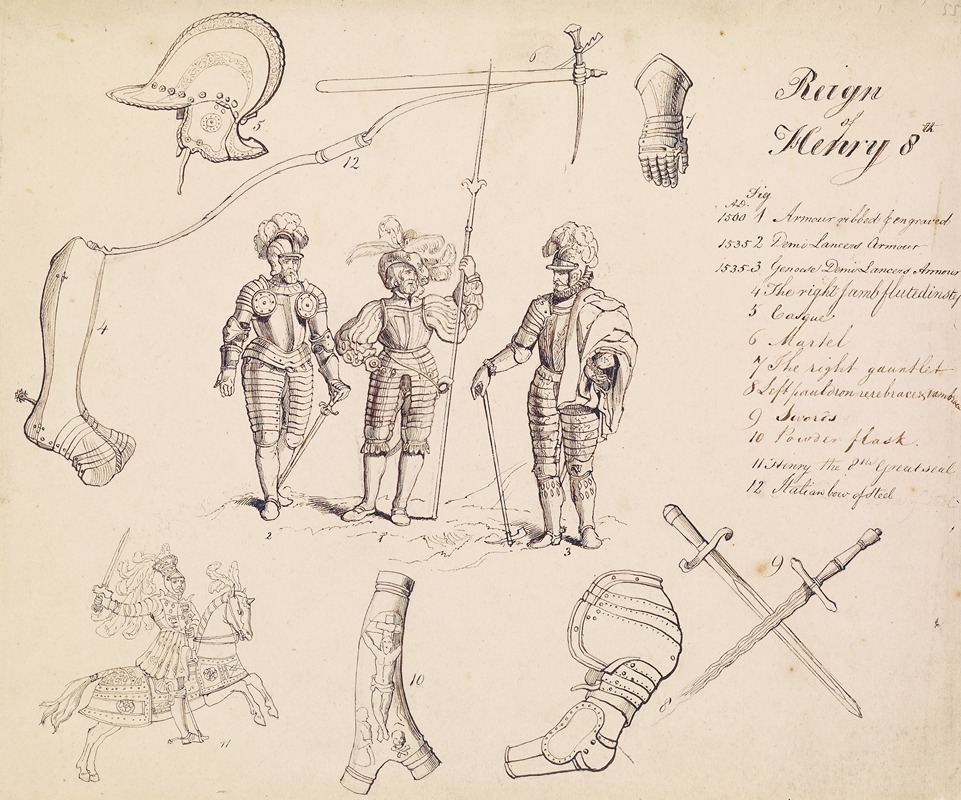 Reign
of
Henry 8th
Fig
A.D.
1500 1 Armour ribbed & engraved
1535 2 Demi Lancers Armour
1535.3 Genoese Demi Lancers Armour
4 The right Jamb fluted
5 Casque
6 Martel
7 The right gauntlet
8 Left pauldron rerebrace &
9 Swords
10 Powder flask.
11 Henry the 8th Great seal
12 Italian bow of Steel
5
6
7
12
4
2
1
3
9
11
10
8